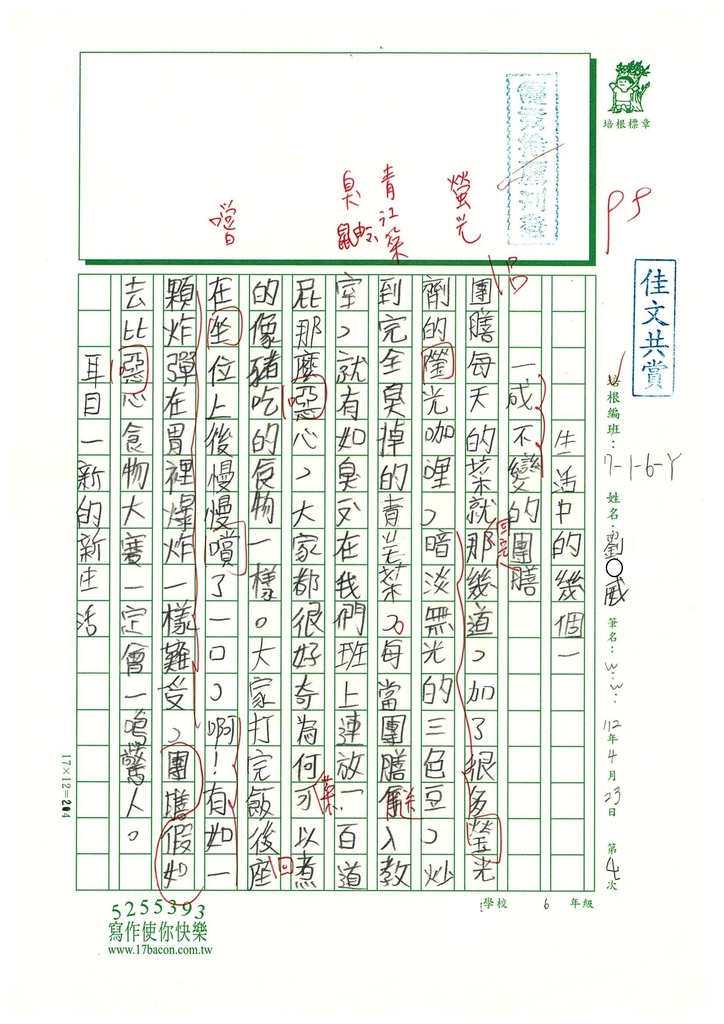 培根標章
優秀推薦刊登
佳文共賞
95
培根編班：7-1-6-Y 姓名：劉○威 筆名：w:w: 112年4月23日 第4次
螢光
青江菜
臭鼬
嚐
生活中的幾個一
一成不變的團膳
團膳每天的菜就那幾道，加了很多瑩光
劑的瑩光咖哩，暗淡無光的三色豆，炒
到完全臭掉的青江菜。每當團膳進入教
室，就有如臭又在我們班上連放一百道
屁那麼噁心，大家都很好奇為何可以煮
的像豬吃的食物一樣。大家打完飯後座
在坐位上後慢慢嚐了一口，啊！有如一
顆炸彈在胃裡爆炸一樣難受，團膳假如
去比噁心食物大賽一定會一鳴驚人。
耳目一新的新生活
17×12=204
學校 6 年級
5255393
寫作使你快樂
www.17bacon.com.tw